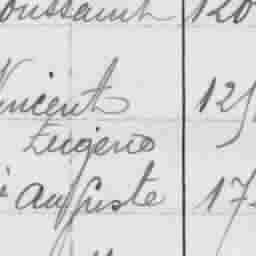 oussaint 120
Vincent 125
Eugène
Auguste 17